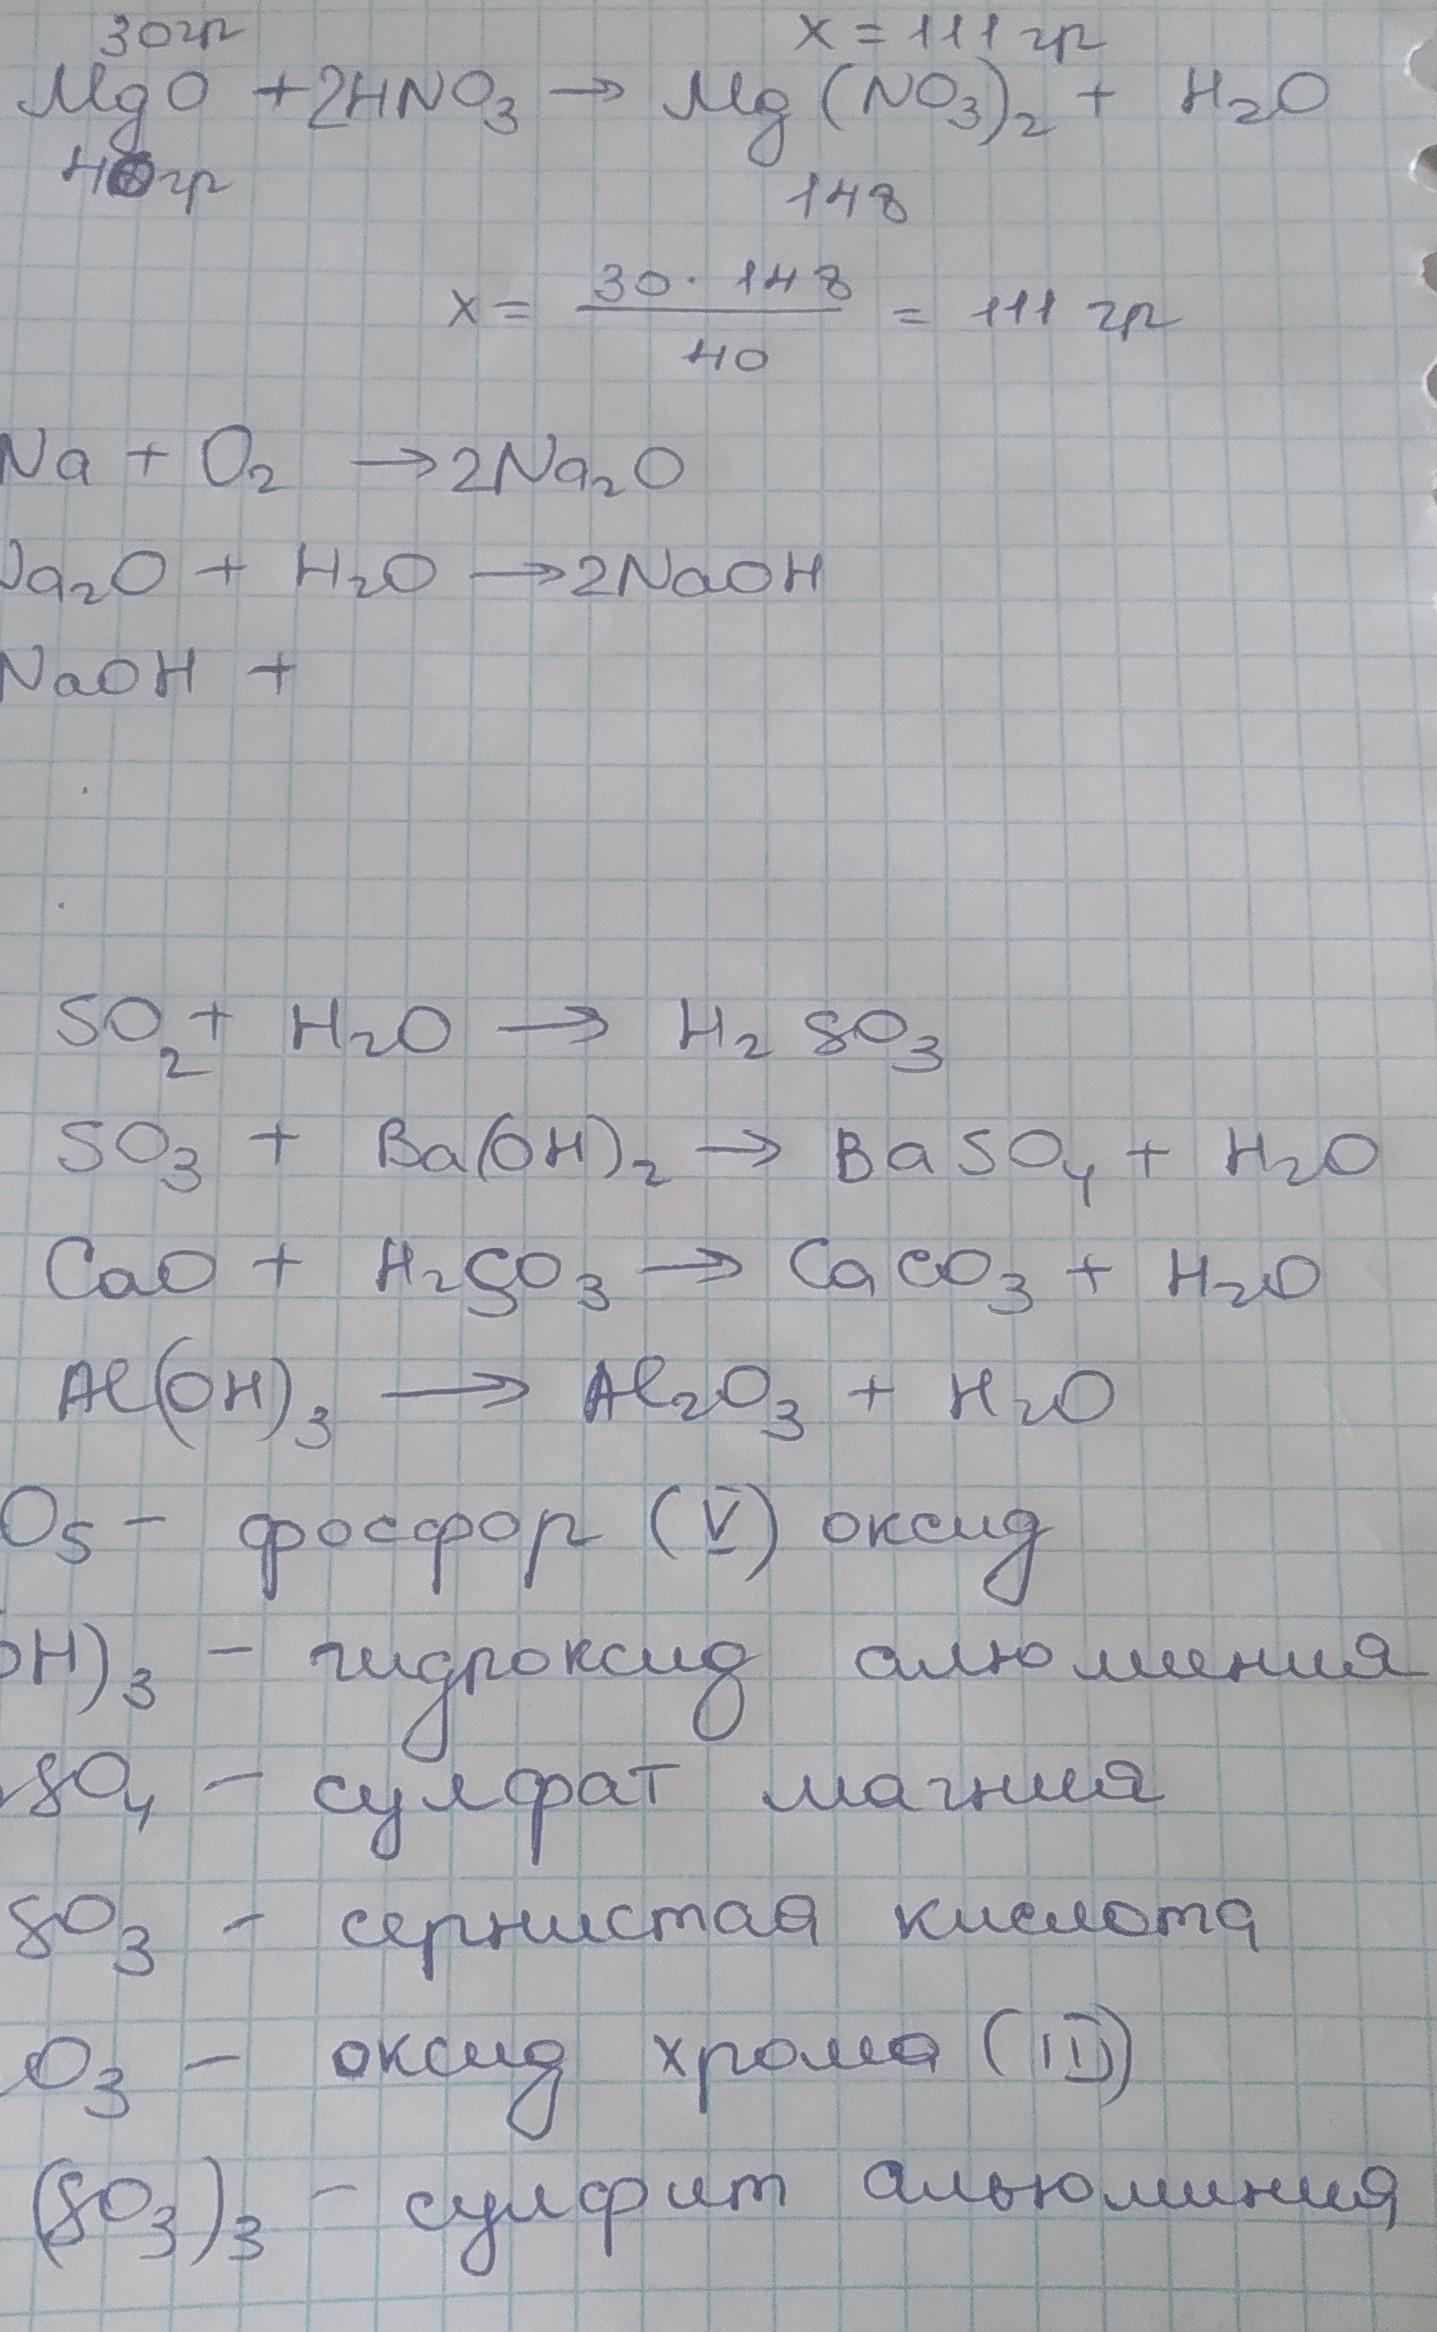 30гр x = 111 гр
MgO + 2HNO₃ → Mg(NO₃)₂ + H₂O
40гр 148
x = 30 · 148 / 40 = 111 гр
Na + O₂ → 2Na₂O
Na₂O + H₂O → 2NaOH
NaOH +
SO₂ + H₂O → H₂SO₃
SO₃ + Ba(OH)₂ → BaSO₄ + H₂O
CaO + H₂SO₃ → CaCO₃ + H₂O
Al(OH)₃ → Al₂O₃ + H₂O
O₅ - фосфор (V) оксид
OH)₃ - гидроксид алюминия
SO₄ - сулфат магния
SO₃ - сернистая кислота
O₃ - оксид хрома (III)
(SO₃)₃ - сулфит альюминия